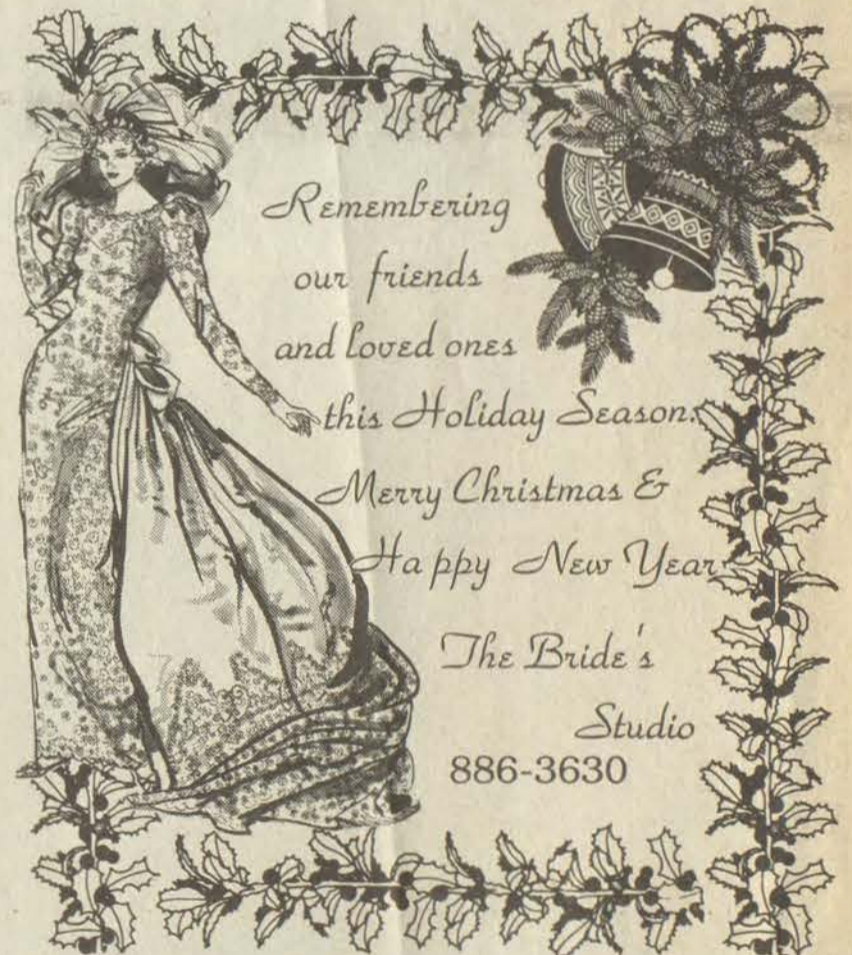 Remembering
our friends
and loved ones
this Holiday Season.
Merry Christmas &
Happy New Year
The Bride's
Studio
886-3630